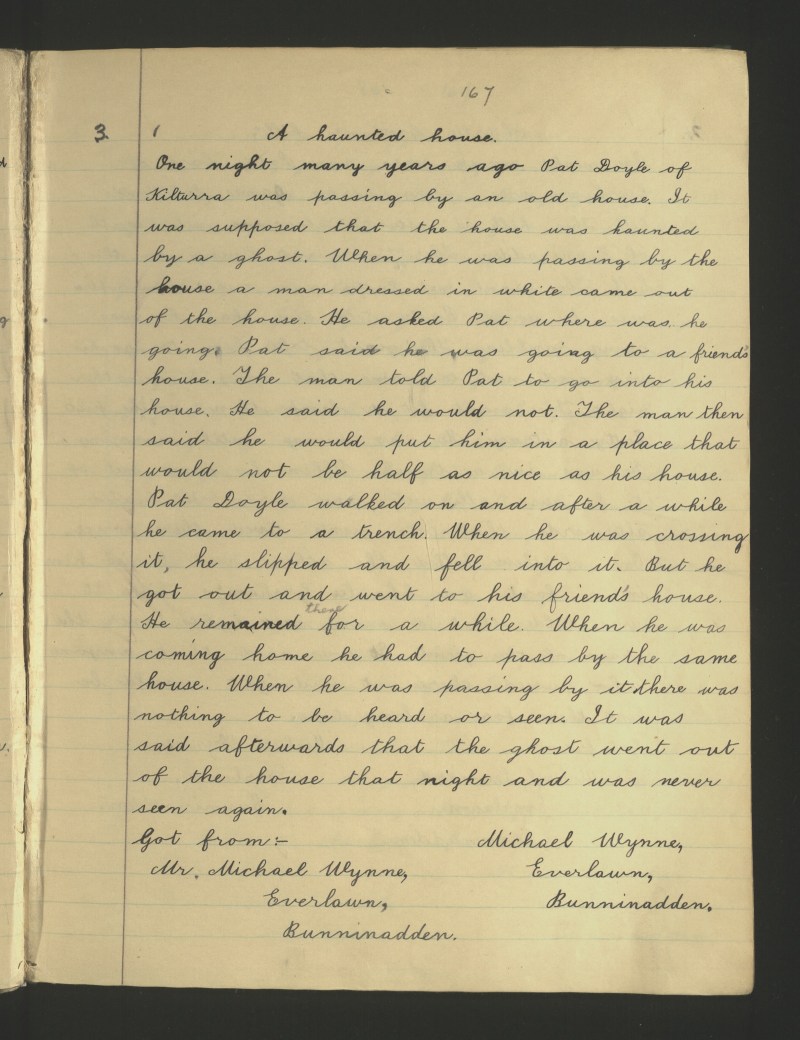 167
3. A haunted house.
One night many years ago Pat Doyle of
Kilturra was passing by an old house. It
was supposed that the house was haunted
by a ghost. When he was passing by the
house a man dressed in white came out
of the house. He asked Pat where was he
going. Pat said he was going to a friend's
house. The man told Pat to go into his
house. He said he would not. The man then
said he would put him in a place that
would not be half as nice as his house.
Pat Doyle walked on and after a while
he came to a trench. When he was crossing
it, he slipped and fell into it. But he
got out and went to his friend's house.
He remained there for a while. When he was
coming home he had to pass by the same
house. When he was passing by it there was
nothing to be heard or seen. It was
said afterwards that the ghost went out
of the house that night and was never
seen again.
Got from:- Michael Wynne,
Mr. Michael Wynne, Everlawn,
Everlawn, Bunninadden.
Bunninadden.